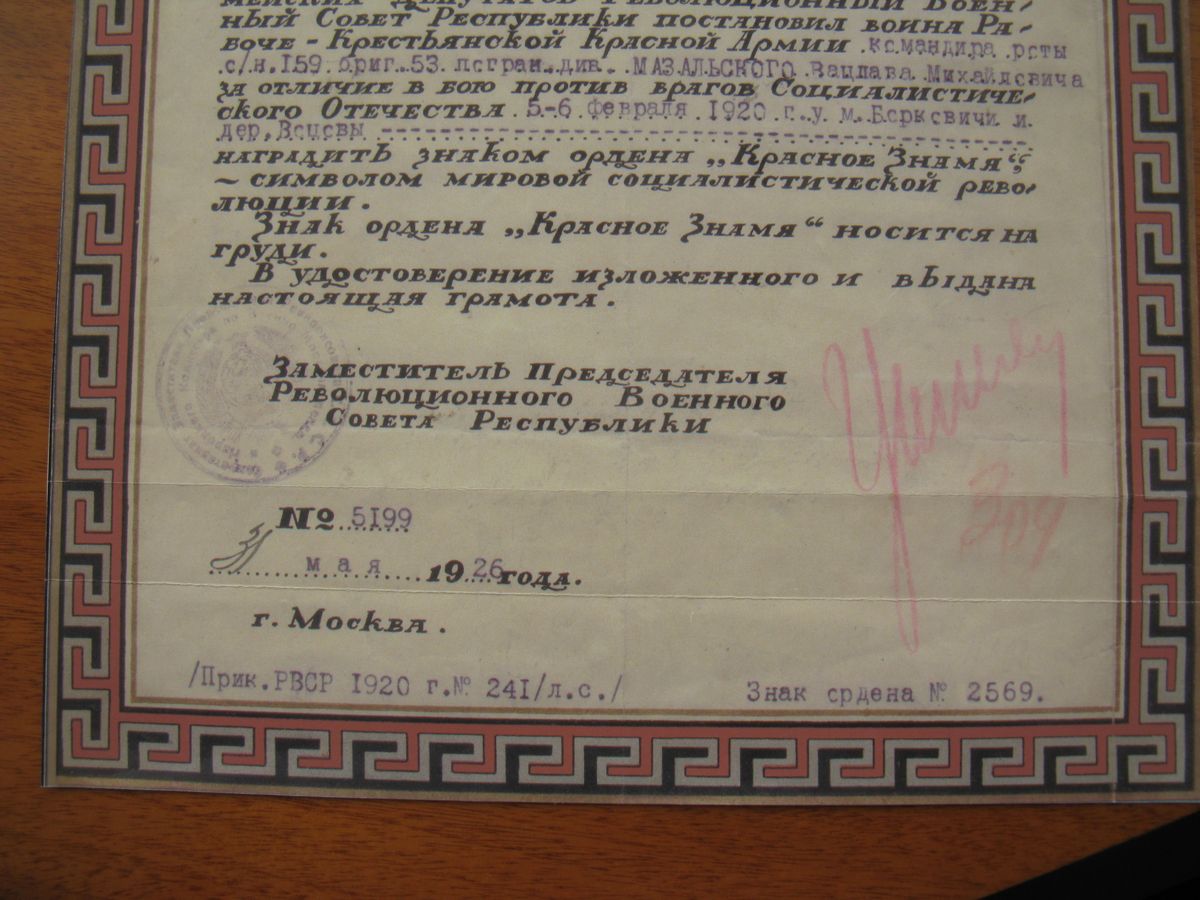 мейских Депутатов Революционный Воен-
ный Совет Республики постановил воина Ра-
боче-Крестьянской Красной Армии командира роты
с/н.159 бриг.53 погран.див. МАЗАЛЬСКОГО Вацлава Михайловича
за отличие в бою против врагов Социалистиче-
ского Отечества 5-6 февраля 1920 г. у м. Борковичи и
дер.
наградить знаком ордена „Красное Знамя“,
— символом мировой социалистической рево-
люции.
Знак ордена „Красное Знамя“ носится на
груди.
В удостоверение изложенного и выдана
настоящая грамота.
Заместитель Председателя
Революционного Военного
Совета Республики
№ 5199
31 мая 1926 года.
г. Москва.
/Прик.РВСР 1920 г.№ 241/л.с./ Знак ордена № 2569.